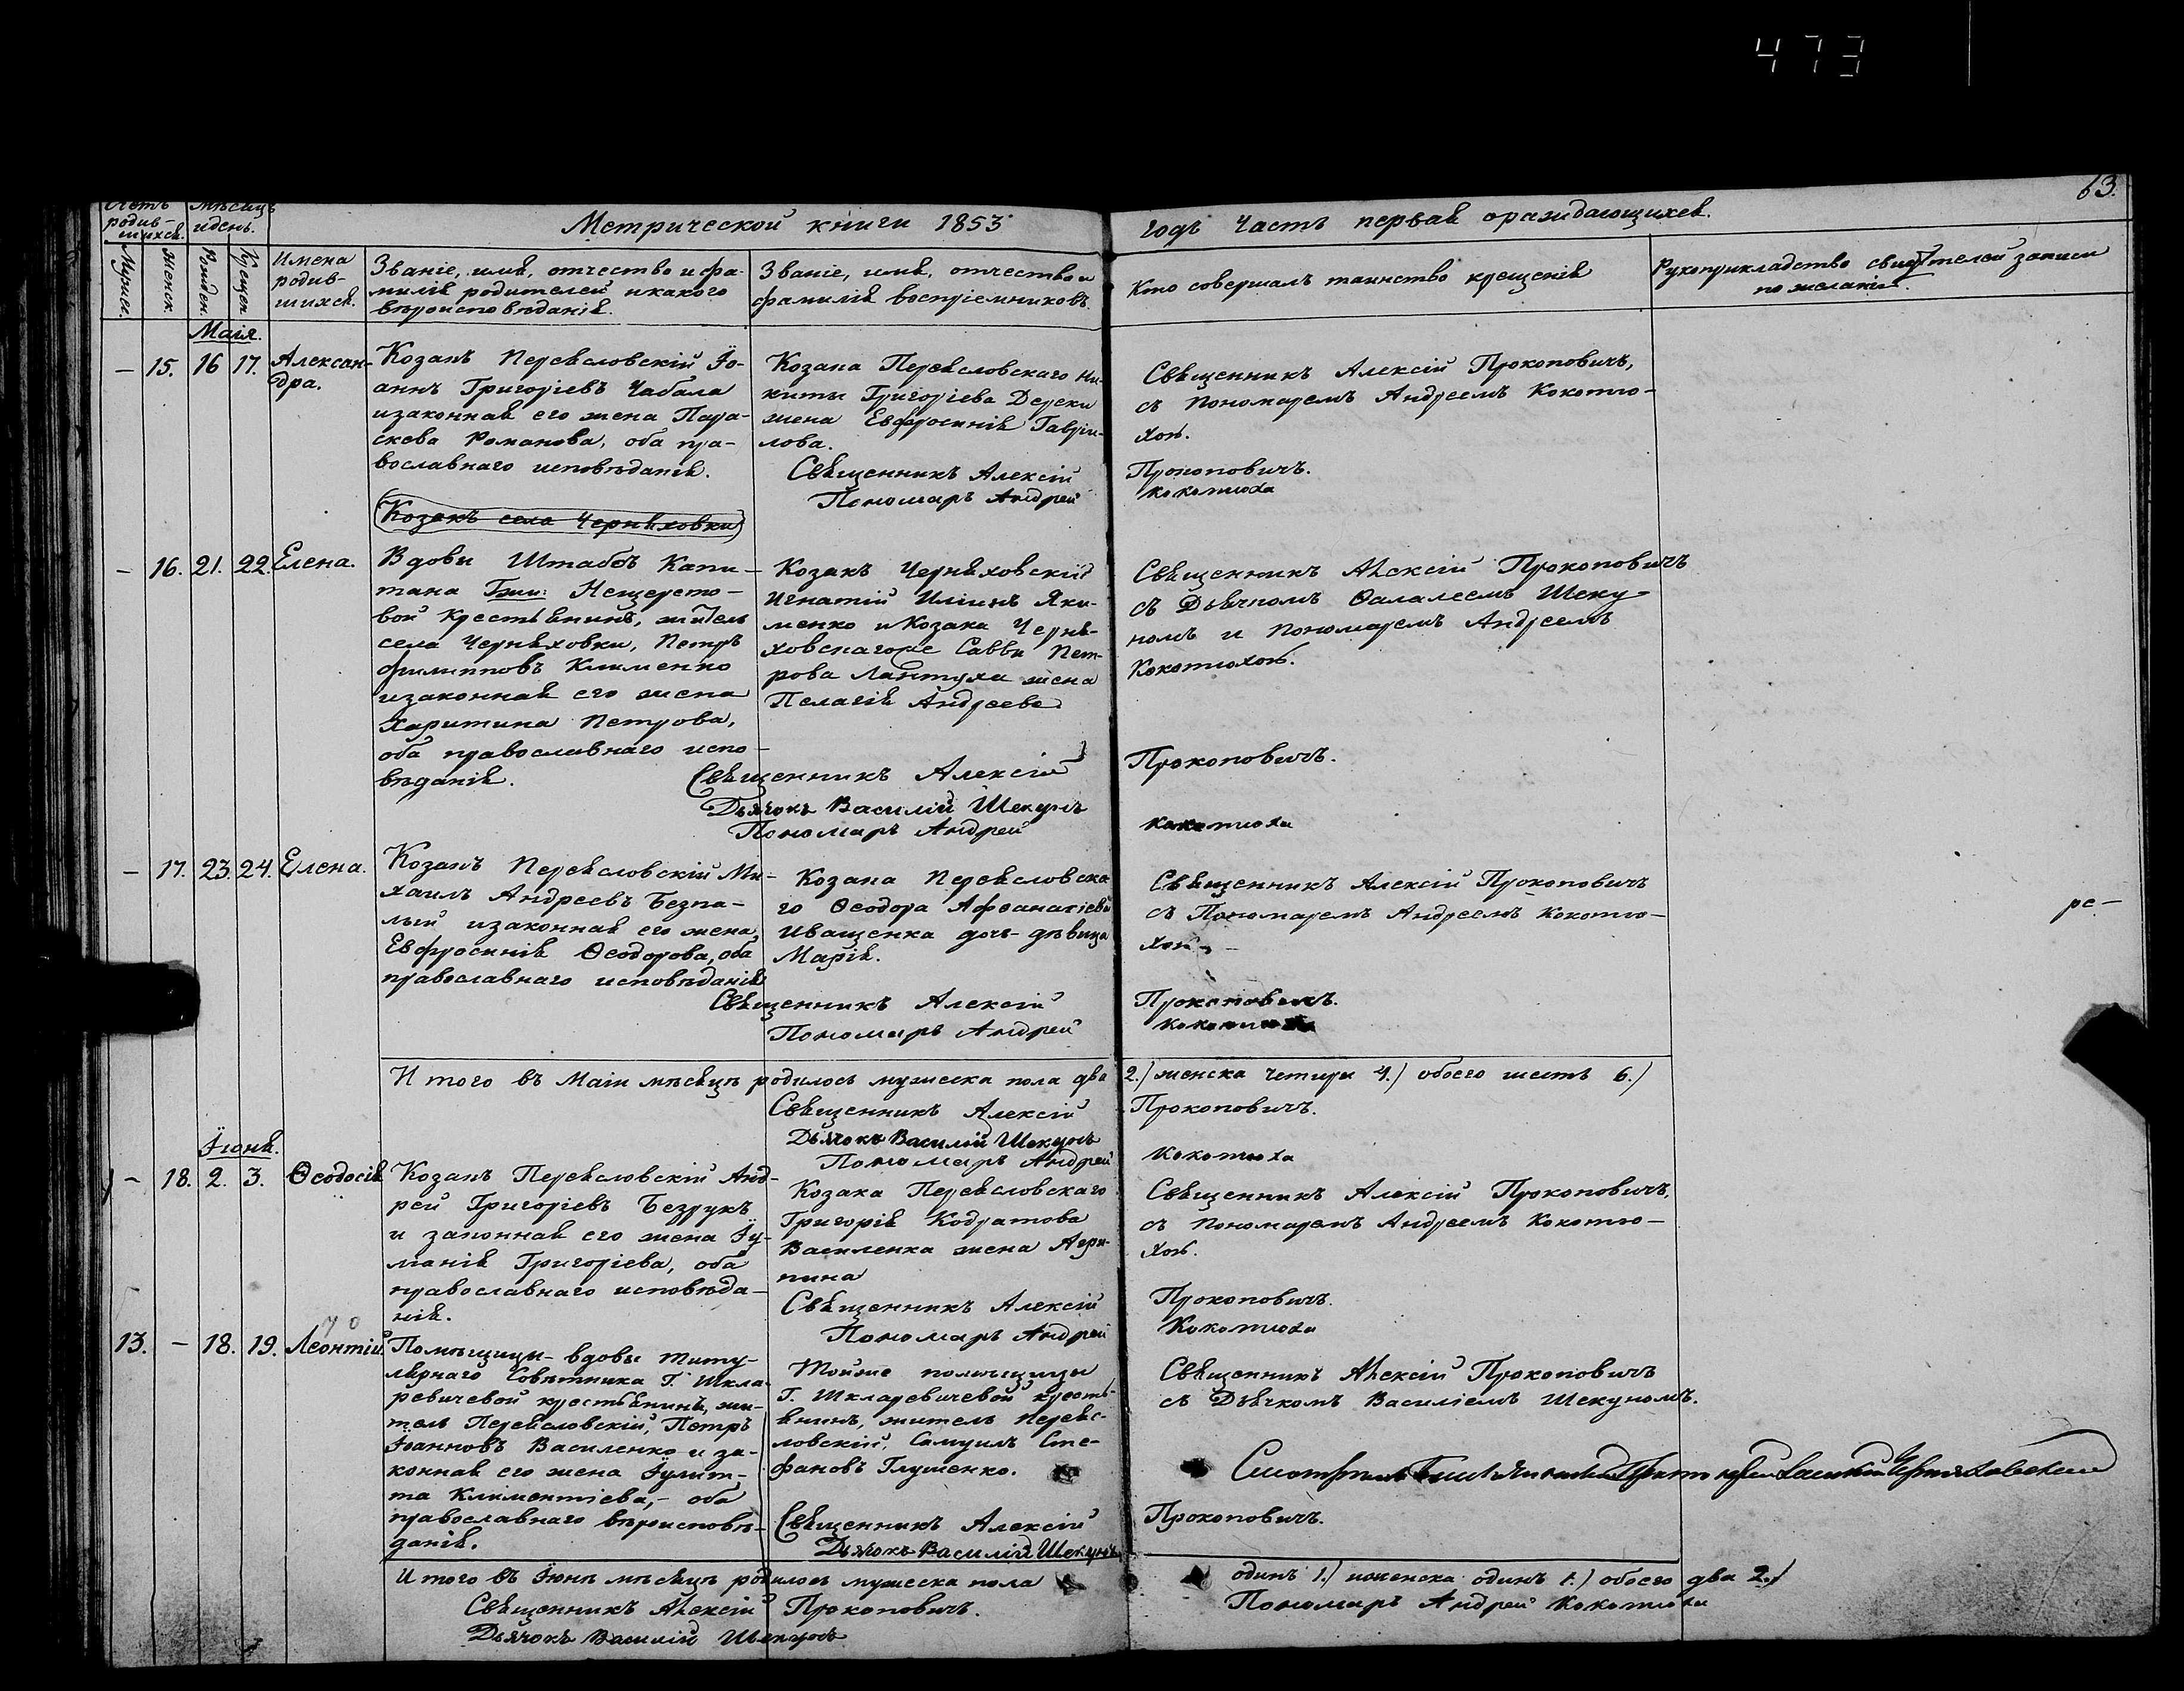 473
63.
Метрической книги 1853
годъ Часть первая ораждающихся.
Счетъ родив-
шихся.
Мѣсяцъ
идень.
Мужес.
Женск.
Рожден.
Крещен.
Имена
родив-
шихся.
Званіе, имя, отчество и фа-
милія родителей и какого
вѣроисповѣданія.
Званіе, имя, отчество и
фамилія воспріемниковъ.
Кто совершалъ таинство крещенія
Рукоприкладство свидѣтелей записи
по желанію.
Маія.
– 15. 16 17. Алексан-
дра.
Козакъ Переясловскій Іо-
аннъ Григоріевъ Чабала
изаконная его жена Пара-
скева Романова, оба пра-
вославнаго исповѣданія.
Козака Переясловскаго Ни-
киты Григоріева Дереки
жена Евфросинія Гаврі-
лова.
Священникъ Алексій
Пономарь Андрей
Священникъ Алексій Прокоповичъ,
съ Пономаремъ Андреемъ Кокотю-
хою.
Прокоповичъ.
Кокотюха
Козакъ села Черняховки
– 16. 21. 22. Елена.
Вдовы Штабсъ Капи-
тана Нещерето-
вой Крестьянинъ, житель
села Черняховки, Петръ
Филипповъ Клименко
изаконная его жена
Харитина Петрова,
оба православнаго испо-
вѣданія.
Козакъ Черняховскій
Игнатій Иліинъ Яки-
менко и Козака Черня-
ховскагоже Саввы Пет-
рова Лантуха жена
Пелагія Андреева
Священникъ Алексій
Дьячокъ Василій Шекунъ
Пономарь Андрей
Священникъ Алексій Прокоповичъ
съ Дьячкомъ Фалалеемъ Шеку-
номъ и Пономаремъ Андреемъ
Кокотюхою.
Прокоповичъ.
Кокотюха
– 17. 23. 24. Елена.
Козакъ Переясловскій Ми-
хаилъ Андреевъ Безпа-
лый изаконная его жена
Евфросинія Ѳеодорова, оба
православнаго исповѣданія
Козака Переясловска
го Ѳеодора Афанасіева
Иващенка дочь-дѣвица
Марія.
Священникъ Алексій
Пономарь Андрей
Священникъ Алексій Прокоповичъ
съ Пономаремъ Андреемъ Кокотю-
хою.
Прокоповичъ.
Кокотюха
ре-
Итого въ Маіи мѣсяцѣ родилось мужеска пола два
2.) женска четыри 4.) обоего шесть 6.)
Священникъ Алексій
Прокоповичъ.
Дьячокъ Василій Шекунъ
Пономарь Андрей
Кокотюха
Іюня.
– 18. 2. 3. Ѳеодосія
Козакъ Переясловскій Анд-
рей Григоріевъ Безрукъ
и законная его жена Іу-
ліанія Григоріева, оба
православнаго исповѣда-
нія.
Козака Переясловскаго
Григорія Кодратова
Василенка жена Агри-
пина
Священникъ Алексій
Пономарь Андрей
Священникъ Алексій Прокоповичъ,
съ Пономаремъ Андреемъ Кокотю-
хою.
Прокоповичъ.
Кокотюха
13. – 18. 19. Леонтій.
Помѣщицы-вдовы титу-
лярнаго Совѣтника Г. Шкля-
ревичевой крестьянинъ, жи-
тель Переясловскій, Петръ
Іоанновъ Василенко и за-
конная его жена Іулит-
та Климентіева,- оба
православнаго вѣроисповѣ-
данія.
Тойже помѣщицы
Г. Шкляревичевой кресть-
янинъ, житель Переяс-
ловскій, Самуилъ Сте-
фановъ Глушенко.
Священникъ Алексій
Дьячокъ Василій Шекунъ
Священникъ Алексій Прокоповичъ
съ Дьячкомъ Василіемъ Шекуномъ.
Прокоповичъ.
Итого въ Іюнѣ мѣсяцѣ родилось мужеска пола
одинъ 1.) иженска одинъ 1.) обоего два 2.)
Священникъ Алексій Прокоповичъ.
Пономарь Андрей Кокотюха
Дьячокъ Василій Шекунъ